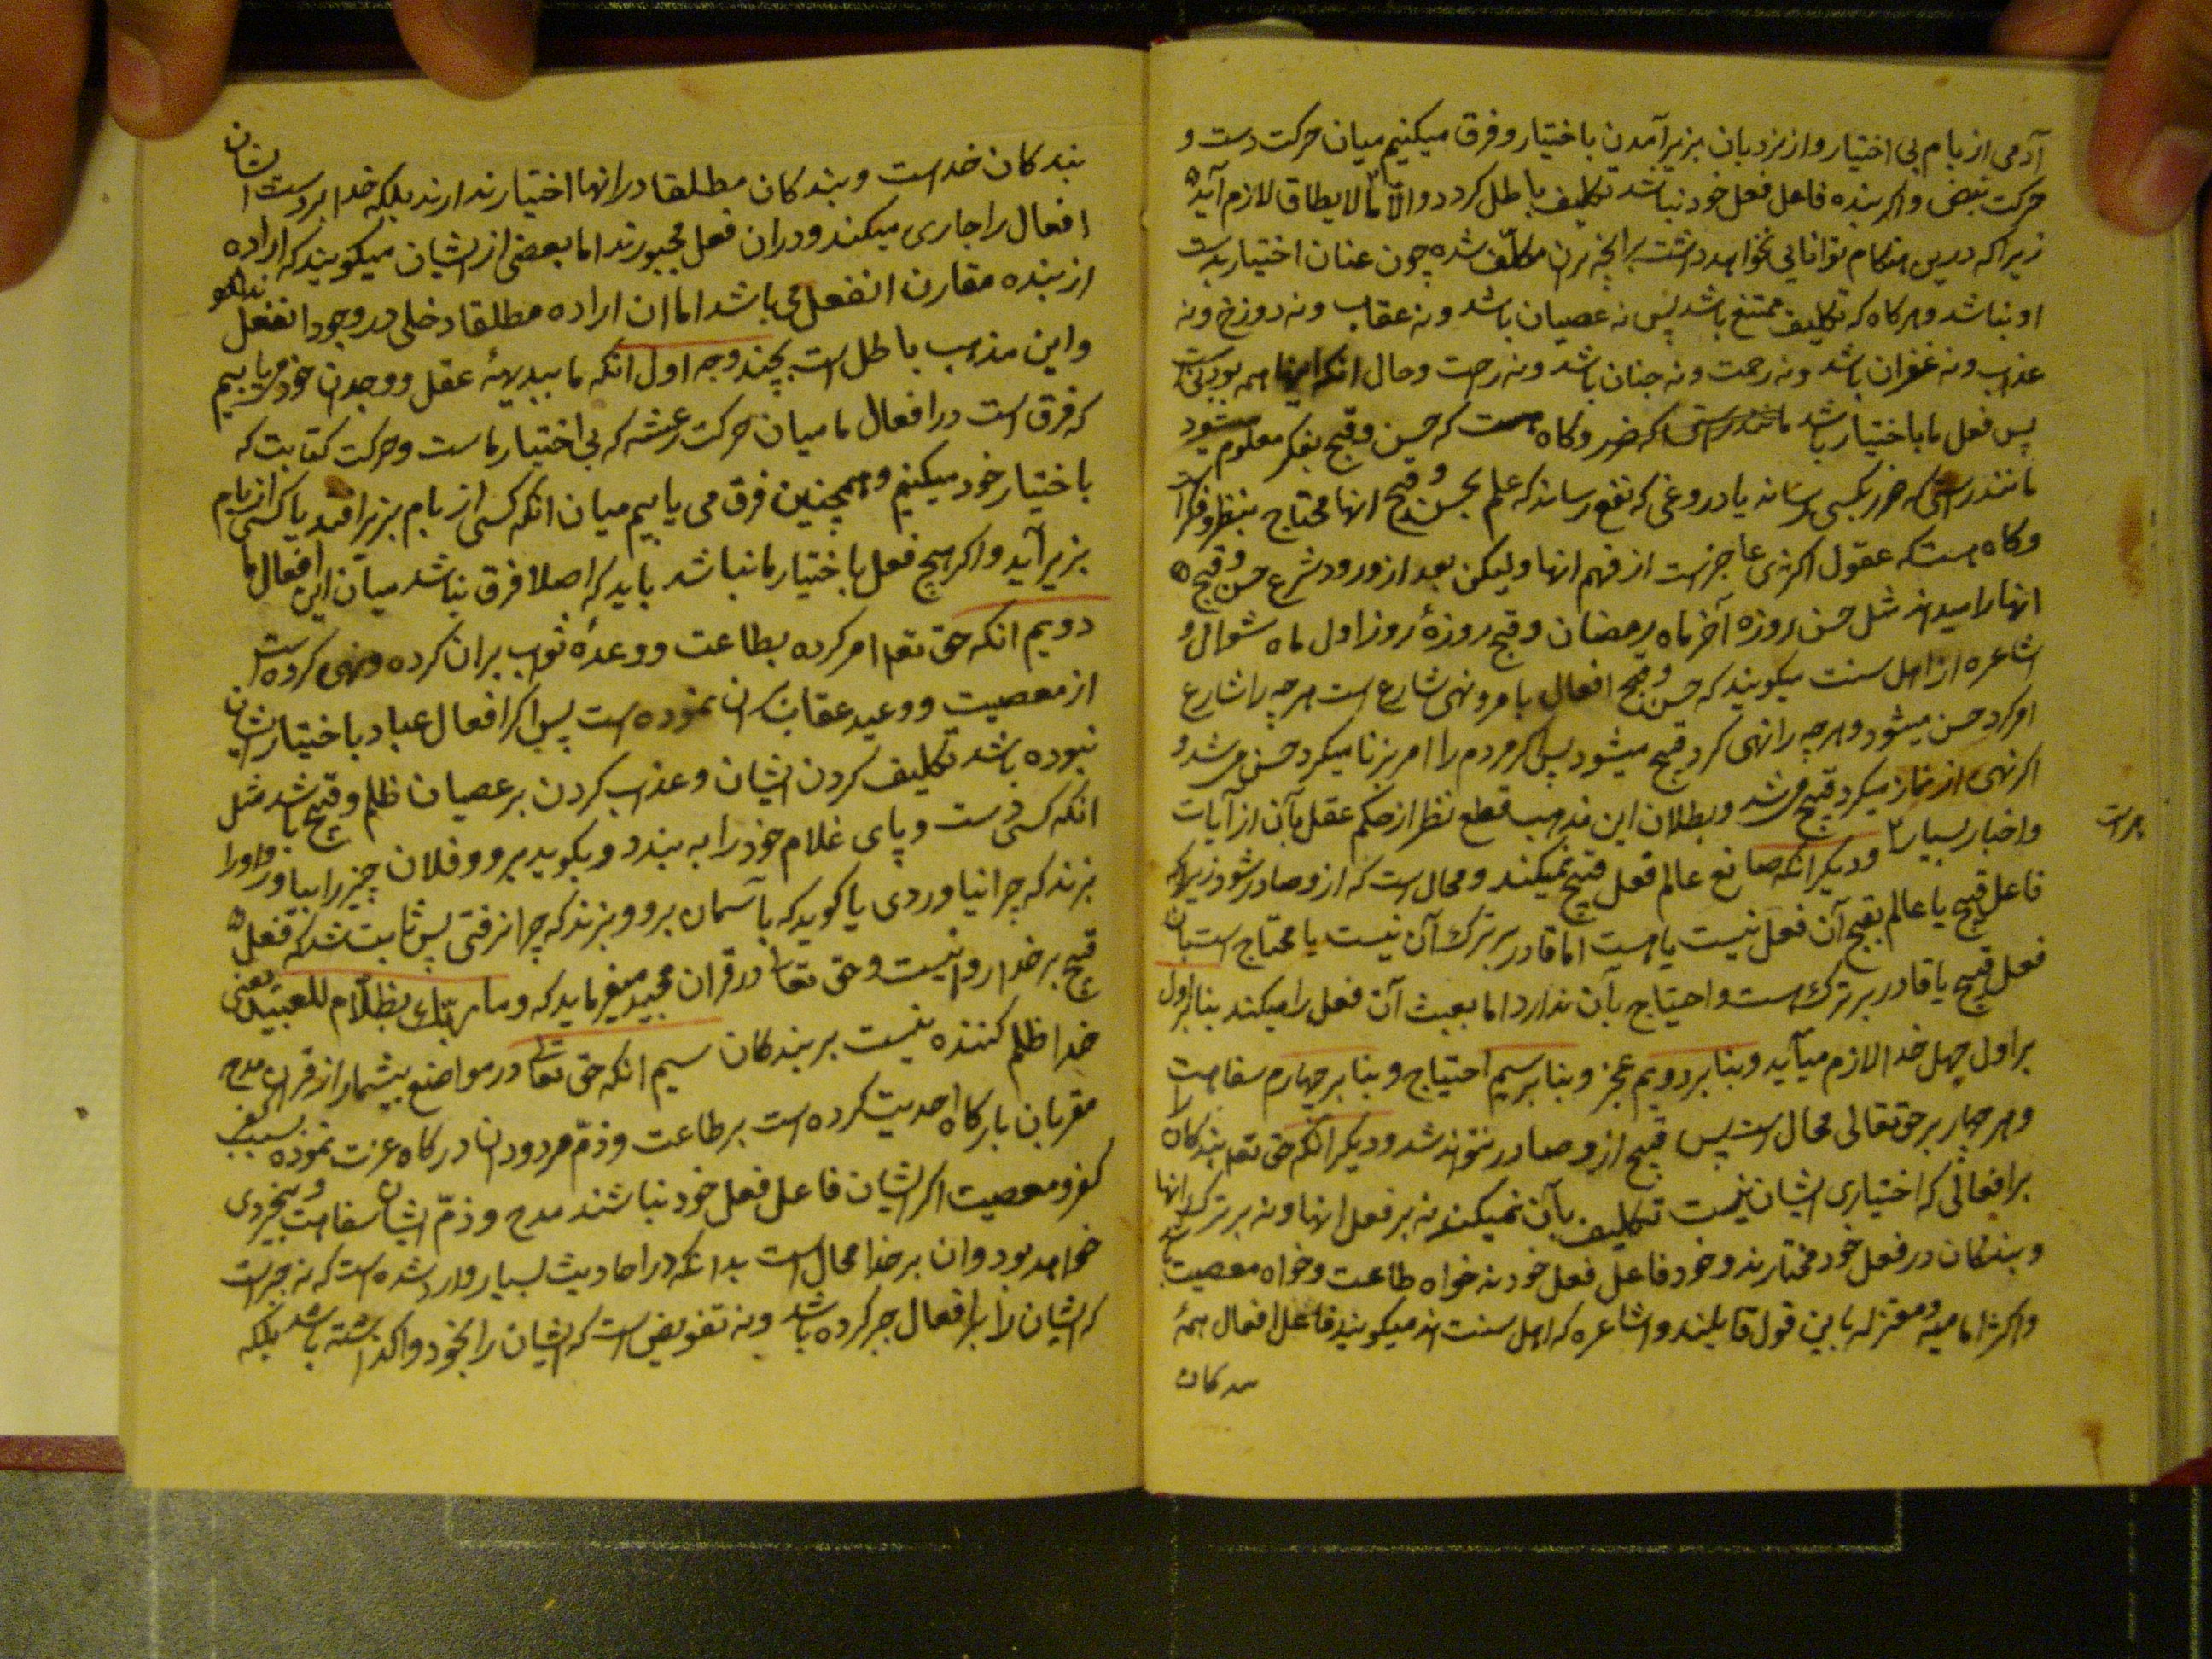 آدمی از بام بی اختیار و از نردبان بزیر آمدن باختیار و فرق میکنیم میان حرکت دست و
حرکت نبض و اکر بنده فاعل فعل خود نباشد تکلیف باطل کردد و الا تکلیف ما لا یطاق لازم آید
زیرا که درین هنکام توانایی نخواهد داشت برانچه بران مکلف شده چون عنان اختیار بدست
او نباشد و هرکاه که تکلیف ممتنع باشد پس نه عصیان باشد و نه عقاب و نه دوزخ و نه
عذاب و نه غفران باشد و نه رحمت و نه جنان باشد و نه رحمت و حال انکه اینها همه بودنی
پس فعل ما باختیار باشد مانند راستی که ضرر و کاه هست که حسن و قبح بفکر معلوم میشود
مانند راستی که ضرر بکسی رساند یا دروغی که نفع رساند که علم بحسن و قبح انها محتاج بنظر و فکر است
و کاه هست که عقول اکثری عاجز است از فهم انها و لیکن بعد از ورود شرع حسن و قبح
انها را میداند مثل حسن روزه آخر ماه رمضان و قبح روزهٔ روز اول ماه شوال و
اشاعره از اهل سنت میکویند که حسن و قبح افعال بامر و نهی شارع است هر چه را شارع
امر کرد حسن میشود و هر چه را نهی کرد قبیح میشود پس اکر مردم را امر بزنا میکرد حسن میشد و
اکر نهی از نماز میکرد قبیح میشد و بطلان این مذهب قطع نظر از حکم عقل بآن از آیات
و اخبار بسیار و دیکر انکه صانع عالم فعل قبیح نمیکند و محال است که ازو صادر شود زیرا که
فاعل قبیح یا عالم بقبح آن فعل نیست یا هست اما قادر بر ترک آن نیست یا محتاج است بان
فعل قبیح یا قادر بر ترک هست و احتیاج بآن ندارد اما بعبث آن فعل را میکند بنا
بر اول جهل خدا لازم میآید و بنا بر دویم عجز و بنا بر سیم احتیاج و بنا بر چهارم سفاهت
و هر چهار بر حق تعالی محال است پس قبیح ازو صادر نتواند شد و دیکر انکه حق تعه بندکان را
بر افعالی که اختیاری ایشان نیست تکلیف بآن نمیکند نه بر فعل انها و نه بر ترک انها
و بندکان در فعل خود مختارند و خود فاعل فعل خودند خواه طاعت و خواه معصیت
و اکثر امامیه و معتزله باین قول قایلند و اشاعره که اهل سنت اند میکویند فاعل افعال همهٔ
بندکان
بندکان خداست و بندکان مطلقا در انها اختیار ندارند بلکه خدا بر دست ایشان
افعال را جاری میکند و دران فعل مجبورند اما بعضی از ایشان میکویند که اراده
از بنده مقارن انفعل می باشد اما ان اراده مطلقا دخلی در وجود انفعل ندارد
و این مذهب باطل است بچند وجه اول انکه ما ببدیهۀ عقل و وجدان خود میابیم
که فرق است در افعال ما میان حرکت رعشه که بی اختیار ماست و حرکت کتابت که
باختیار خود میکنیم و همچنین فرق می یابیم میان انکه کسی از بام بزیر افتد یا کسی از بام
بزیر آید و اکر هیچ فعل باختیار ما نباشد باید که اصلا فرق نباشد میان این افعال ما
دویم انکه حق تعه امر کرده بطاعت و وعدهٔ ثواب بران کرده و نهی کرده است
از معصیت و وعید عقاب بران نموده است پس اکر افعال عباد باختیار ایشان
نبوده باشد تکلیف کردن ایشان و عذاب کردن بر عصیان ظلم و قبیح باشد مثل
انکه کسی دست و پای غلام خود را به بندد و بکوید برو و فلان چیز را بیاور و او را
بزند که چرا نیاوردی یا کوید که بآسمان برو و بزند که چرا نرفتی پس ثابت شد که فعل
قبیح بر خدا روا نیست و حق تعالی در قران مجید میفرماید که و ما ربک بظلام للعبید یعنی
خدا ظلم کننده نیست بر بندکان سیم انکه حق تعالی در مواضع بیشمار از قران مدح
مقربان بارکاه احدیت کرده است بر طاعت و ذم مردودان درکاه عزت نموده بسبب کفر
کفر و معصیت اکر ایشان فاعل فعل خود نباشند مدح و ذم ایشان سفاهت و بیخردی
خواهد بود و ان بر خدا محال است بدانکه در احادیث بسیار وارد شده است که نه جبر است
که ایشان را بر افعال جبر کرده باشد و نه تفویض است که ایشان را بخود واکذاشته باشد بلکه